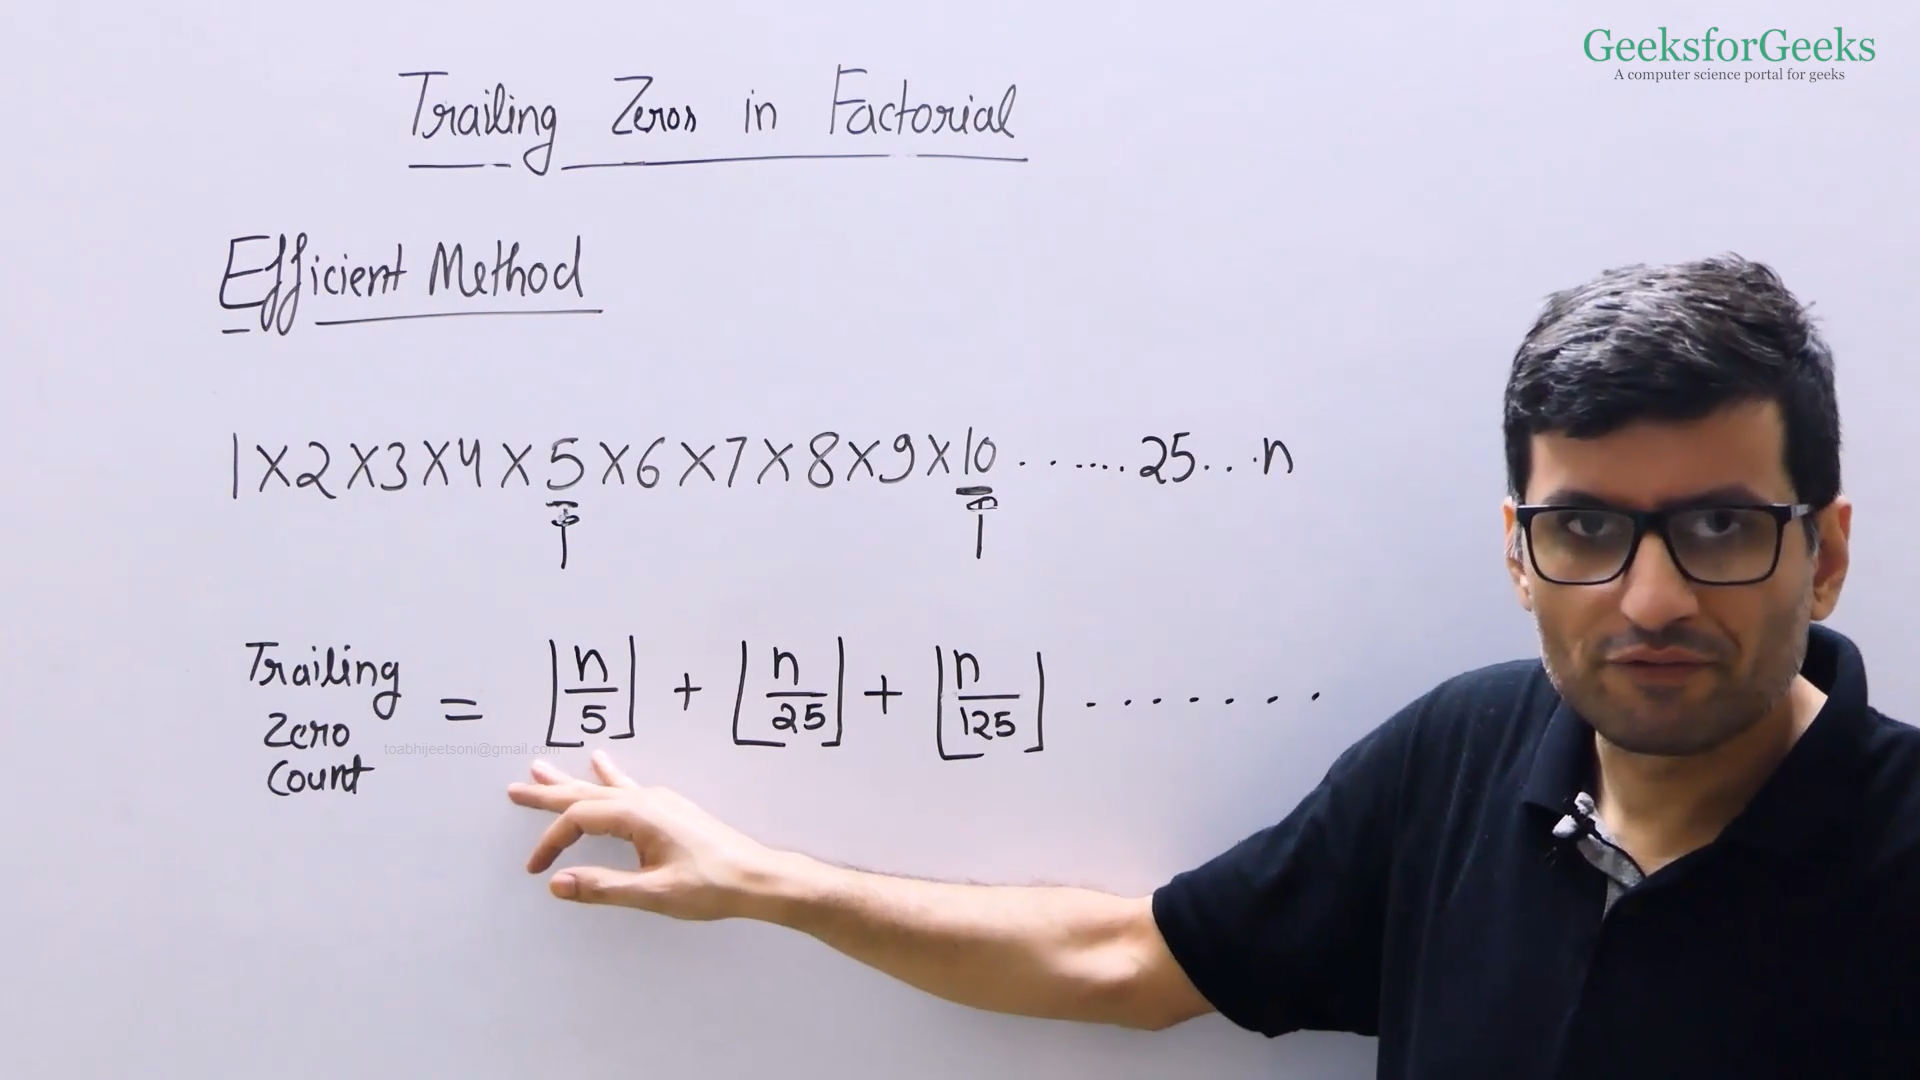 GeeksforGeeks
A computer science portal for geeks
Trailing Zeros in Factorial
Efficient Method
1 X 2 X 3 X 4 X 5 X 6 X 7 X 8 X 9 X 10 ....... 25 ... n
Trailing Zero Count = ⌊n/5⌋ + ⌊n/25⌋ + ⌊n/125⌋ .......
toabhijeetsoni@gmail.com